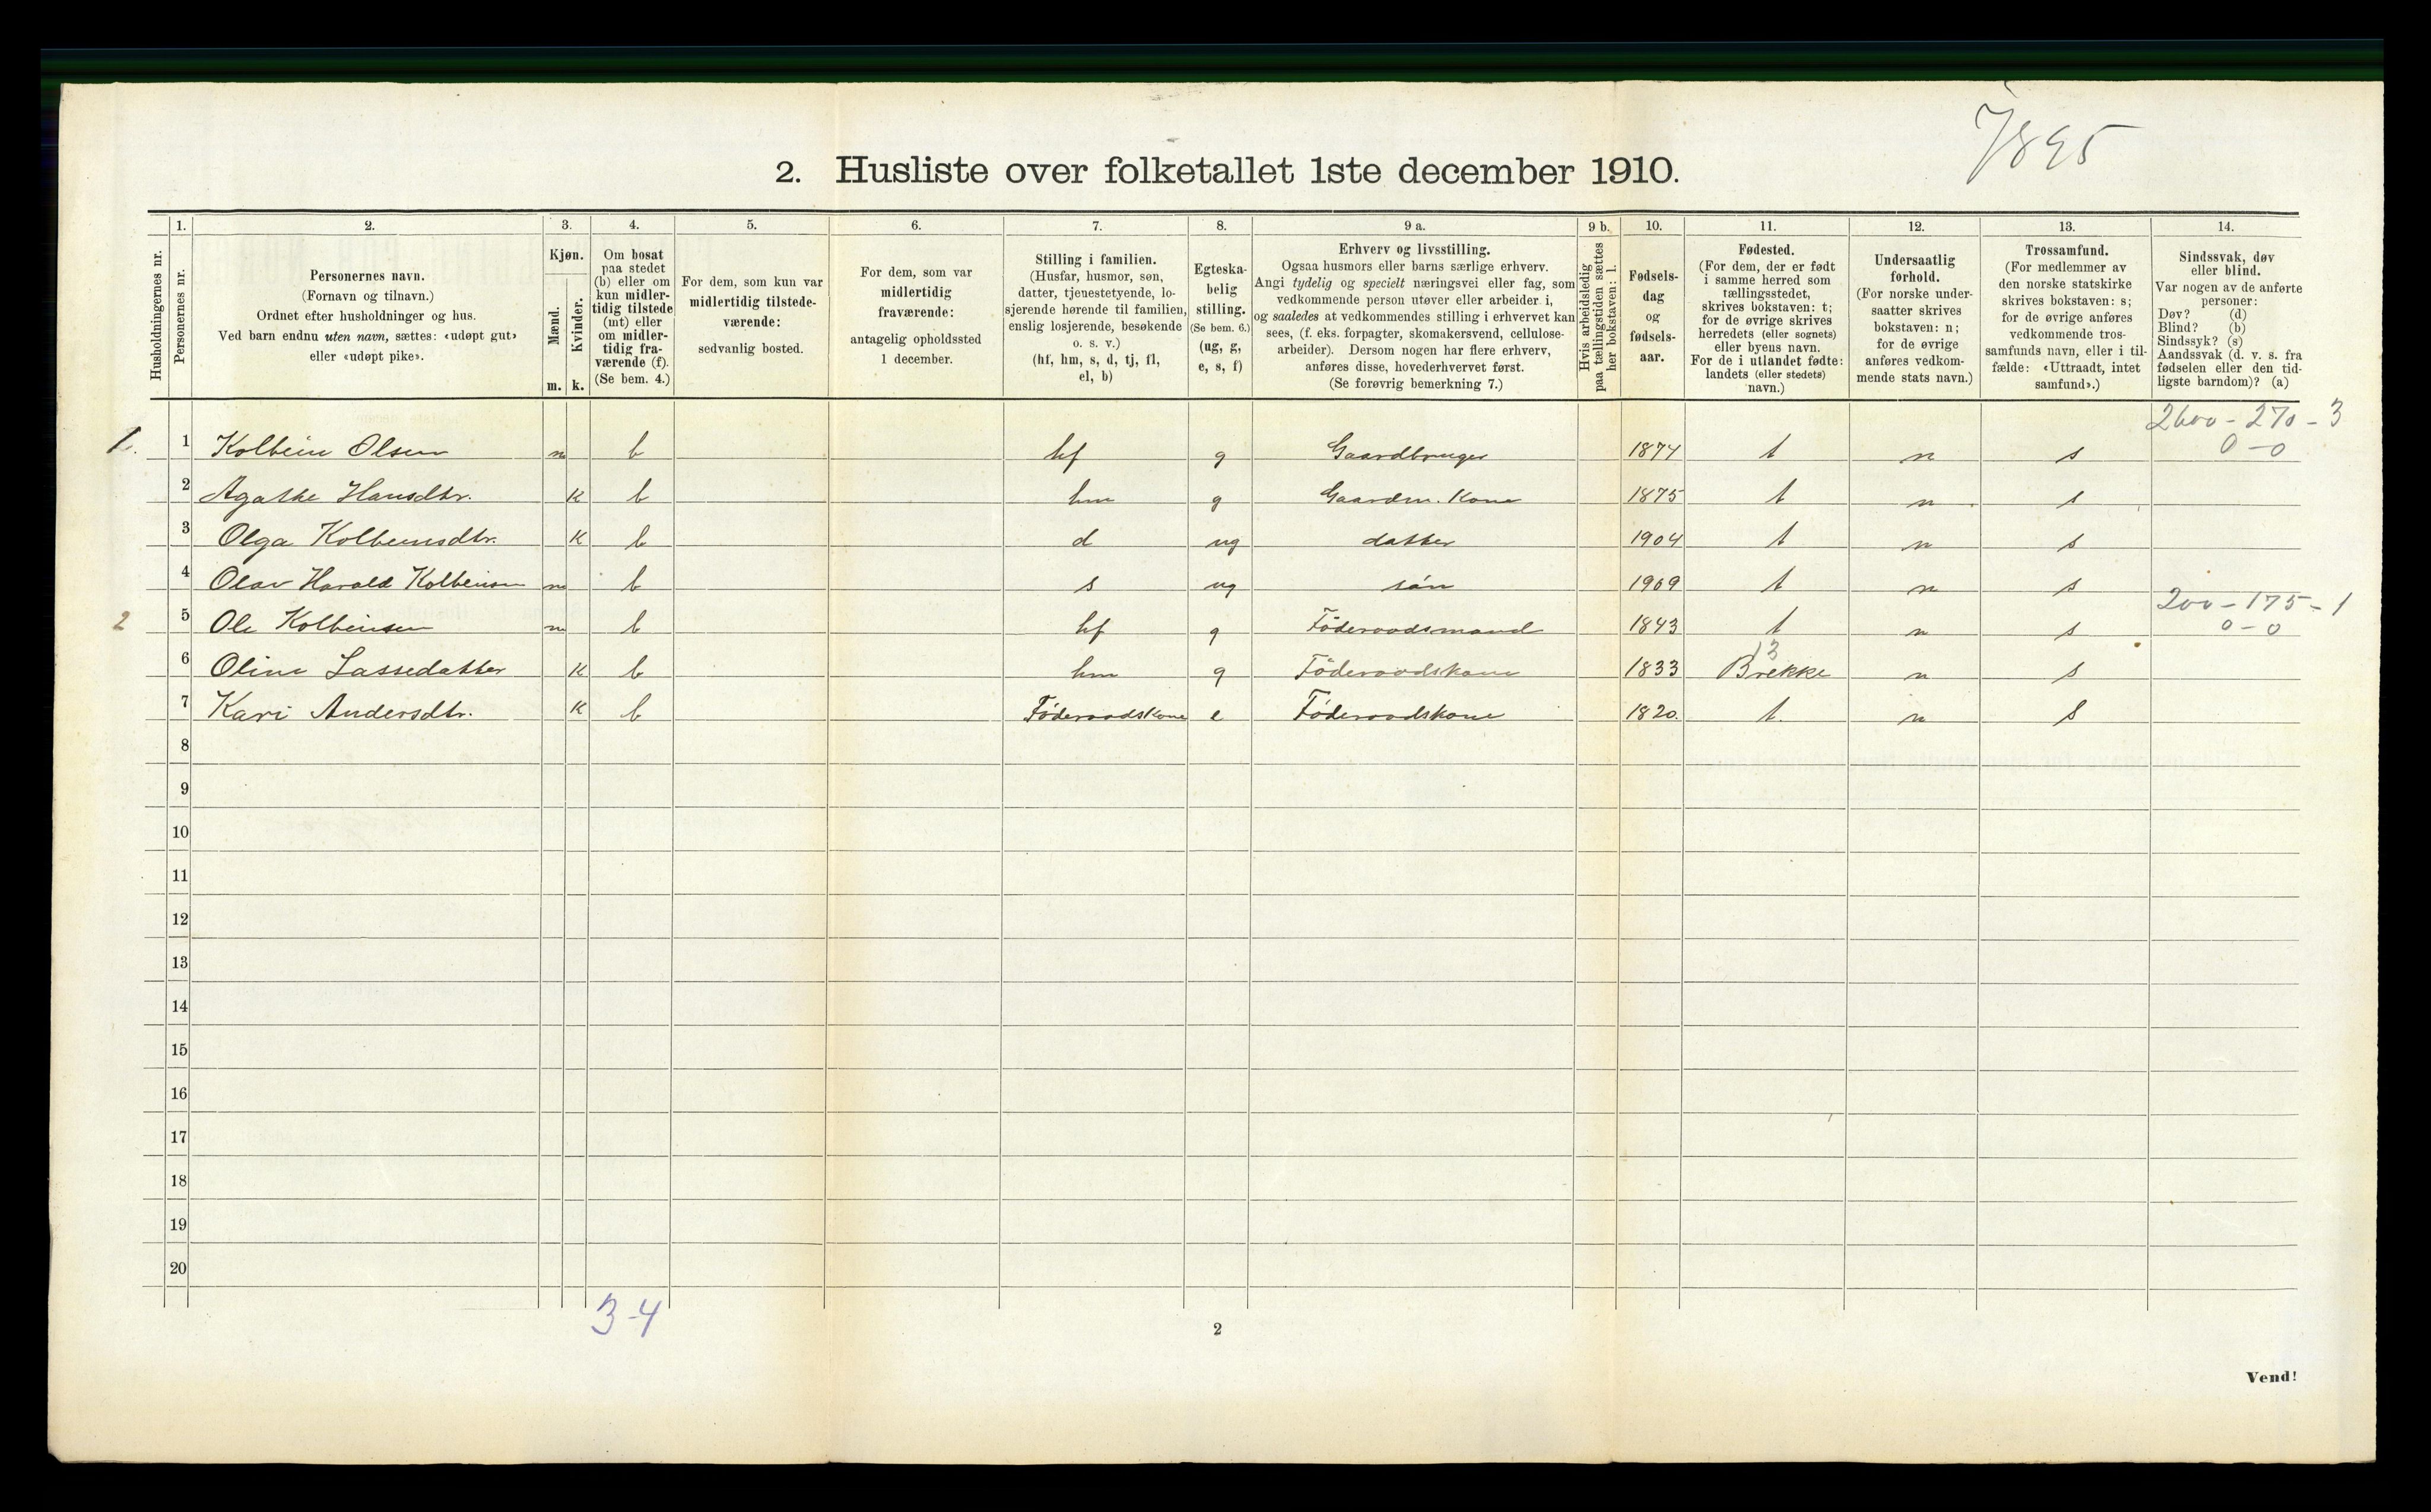 7895
2. Husliste over folketallet 1ste december 1910.
Husholdningernes nr.
1.
Personernes nr.
2.
Personernes navn.
(Fornavn og tilnavn.)
Ordnet efter husholdninger og hus.
Ved barn endnu uten navn, sættes: «udøpt gut»
eller «udøpt pike».
3.
Kjøn.
Mænd.
m.
Kvinder.
k.
4.
Om bosat
paa stedet
(b) eller om
kun midler-
tidig tilstede
(mt) eller
om midler-
tidig fra-
værende (f).
(Se bem. 4.)
5.
For dem, som kun var
midlertidig tilstede-
værende:
sedvanlig bosted.
6.
For dem, som var
midlertidig
fraværende:
antagelig opholdssted
1 december.
7.
Stilling i familien.
(Husfar, husmor, søn,
datter, tjenestetyende, lo-
sjerende hørende til familien,
enslig losjerende, besøkende
o. s. v.)
(hf, hm, s, d, tj, fl,
el, b)
8.
Egteska-
belig
stilling.
(Se bem. 6.)
(ug, g,
e, s, f)
9 a.
Erhverv og livsstilling.
Ogsaa husmors eller barns særlige erhverv.
Angi tydelig og specielt næringsvei eller fag, som
vedkommende person utøver eller arbeider i,
og saaledes at vedkommendes stilling i erhvervet kan
sees, (f. eks. forpagter, skomakersvend, cellulose-
arbeider). Dersom nogen har flere erhverv,
anføres disse, hovederhvervet først.
(Se forøvrig bemerkning 7.)
9 b.
Hvis arbeidsledig
paa tællingstiden sættes
her bokstaven: l.
10.
Fødsels-
dag
og
fødsels-
aar.
11.
Fødested.
(For dem, der er født
i samme herred som
tællingsstedet,
skrives bokstaven: t;
for de øvrige skrives
herredets (eller sognets)
eller byens navn.
For de i utlandet fødte:
landets (eller stedets)
navn.)
12.
Undersaatlig
forhold.
(For norske under-
saatter skrives
bokstaven: n;
for de øvrige
anføres vedkom-
mende stats navn.)
13.
Trossamfund.
(For medlemmer av
den norske statskirke
skrives bokstaven: s;
for de øvrige anføres
vedkommende tros-
samfunds navn, eller i til-
fælde: «Uttraadt, intet
samfund».)
14.
Sindssvak, døv
eller blind.
Var nogen av de anførte
personer:
Døv? (d)
Blind? (b)
Sindssyk? (s)
Aandssvak (d. v. s. fra
fødselen eller den tid-
ligste barndom)? (a)
2600 - 270 - 3
1. 1 Kolbein Olsen m b hf g Gaardbruger 1874 t n s 0 - 0
2 Agathe Hansdtr. k b hm g Gaardm. Kone 1875 t n s
3 Olga Kolbeinsdtr. k b d ug datter 1904 t n s
4 Olav Harald Kolbeinsen m b s ug søn 1909 t n s
200 - 175 - 1
2 5 Ole Kolbeinsen m b hf g Föderaadsmand 1843 t n s 0 - 0
13
6 Oline Lassedatter k b hm g Föderaadskone 1833 Brekke n s
7 Kari Andersdtr. k b Föderaadskone e Föderaadskone 1820. t. n s
8
9
10
11
12
13
14
15
16
17
18
19
20
3-4
2
Vend!